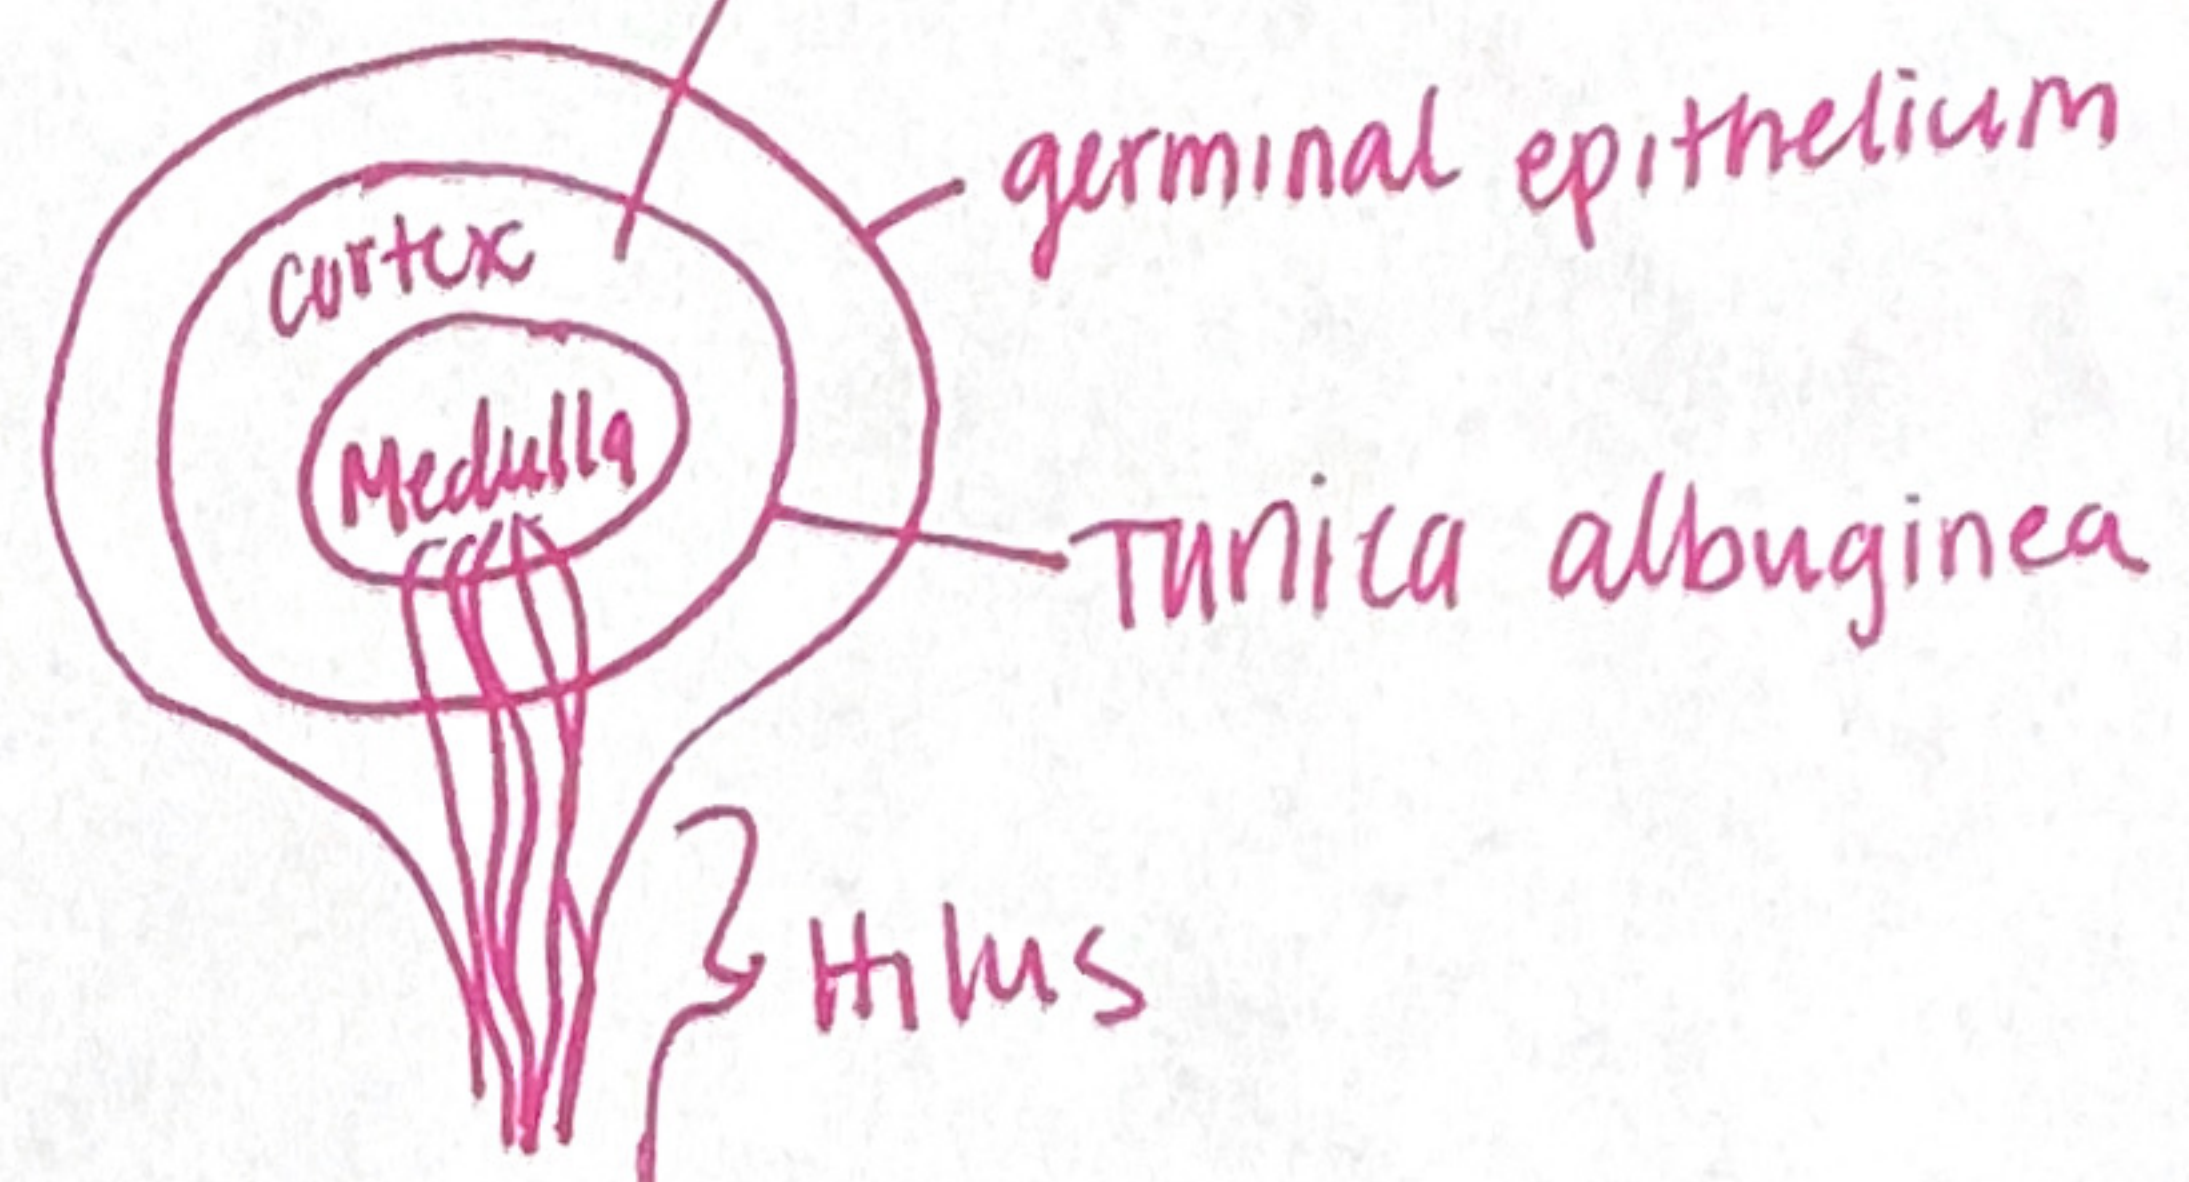 germinal epithelium
cortex
Medulla
Tunica albuginea
Hilus